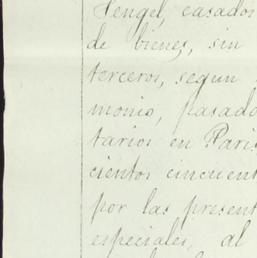 Hengel, casados
de bienes, sin
terceros, segun
monio, pasado
tarios en Paris
cientos cincuent
por las present
especiales, al